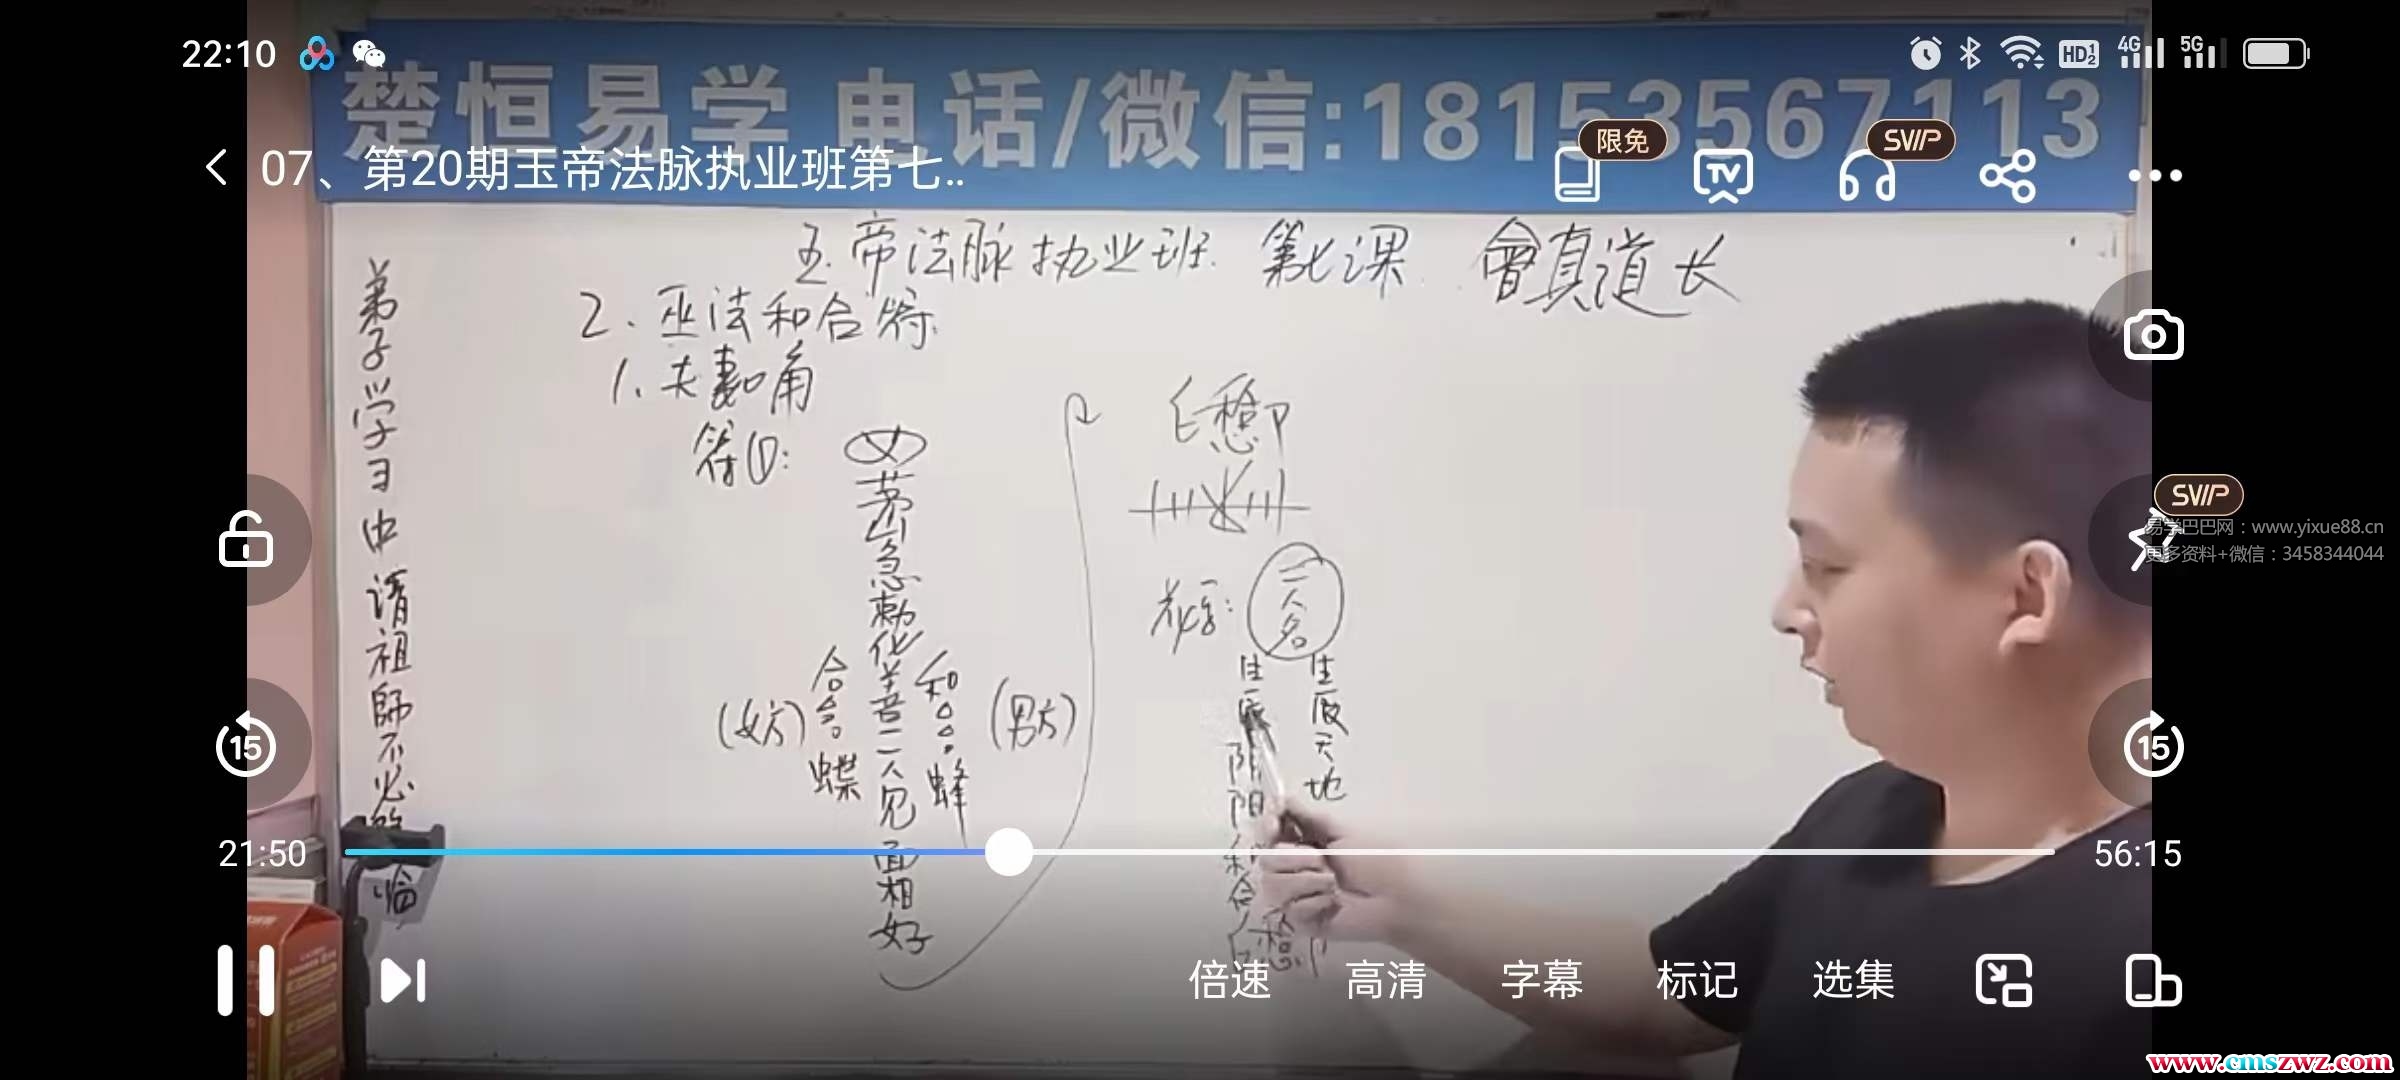 22:10
HD 1 2
4G
5G
楚恒易学 电话/微信:18153567113
07、第20期玉帝法脉执业班第七..
限免
TV
SVIP
玉帝法脉执业班 第七课 曾真道长
弟子学习中请祖師不必
临
2.巫法和合符
1.夫妻和角
符①:
女
茅山急勅化善二人见面相好
(女方)
合合
蝶
和合
蜂
(男方)
二人名
生辰
阴阳和合
生辰天地
SVIP
易学巴巴网：www.yixue88.cn
更多资料+微信：3458344044
15
15
21:50
56:15
倍速
高清
字幕
标记
选集
www.cmszwz.com